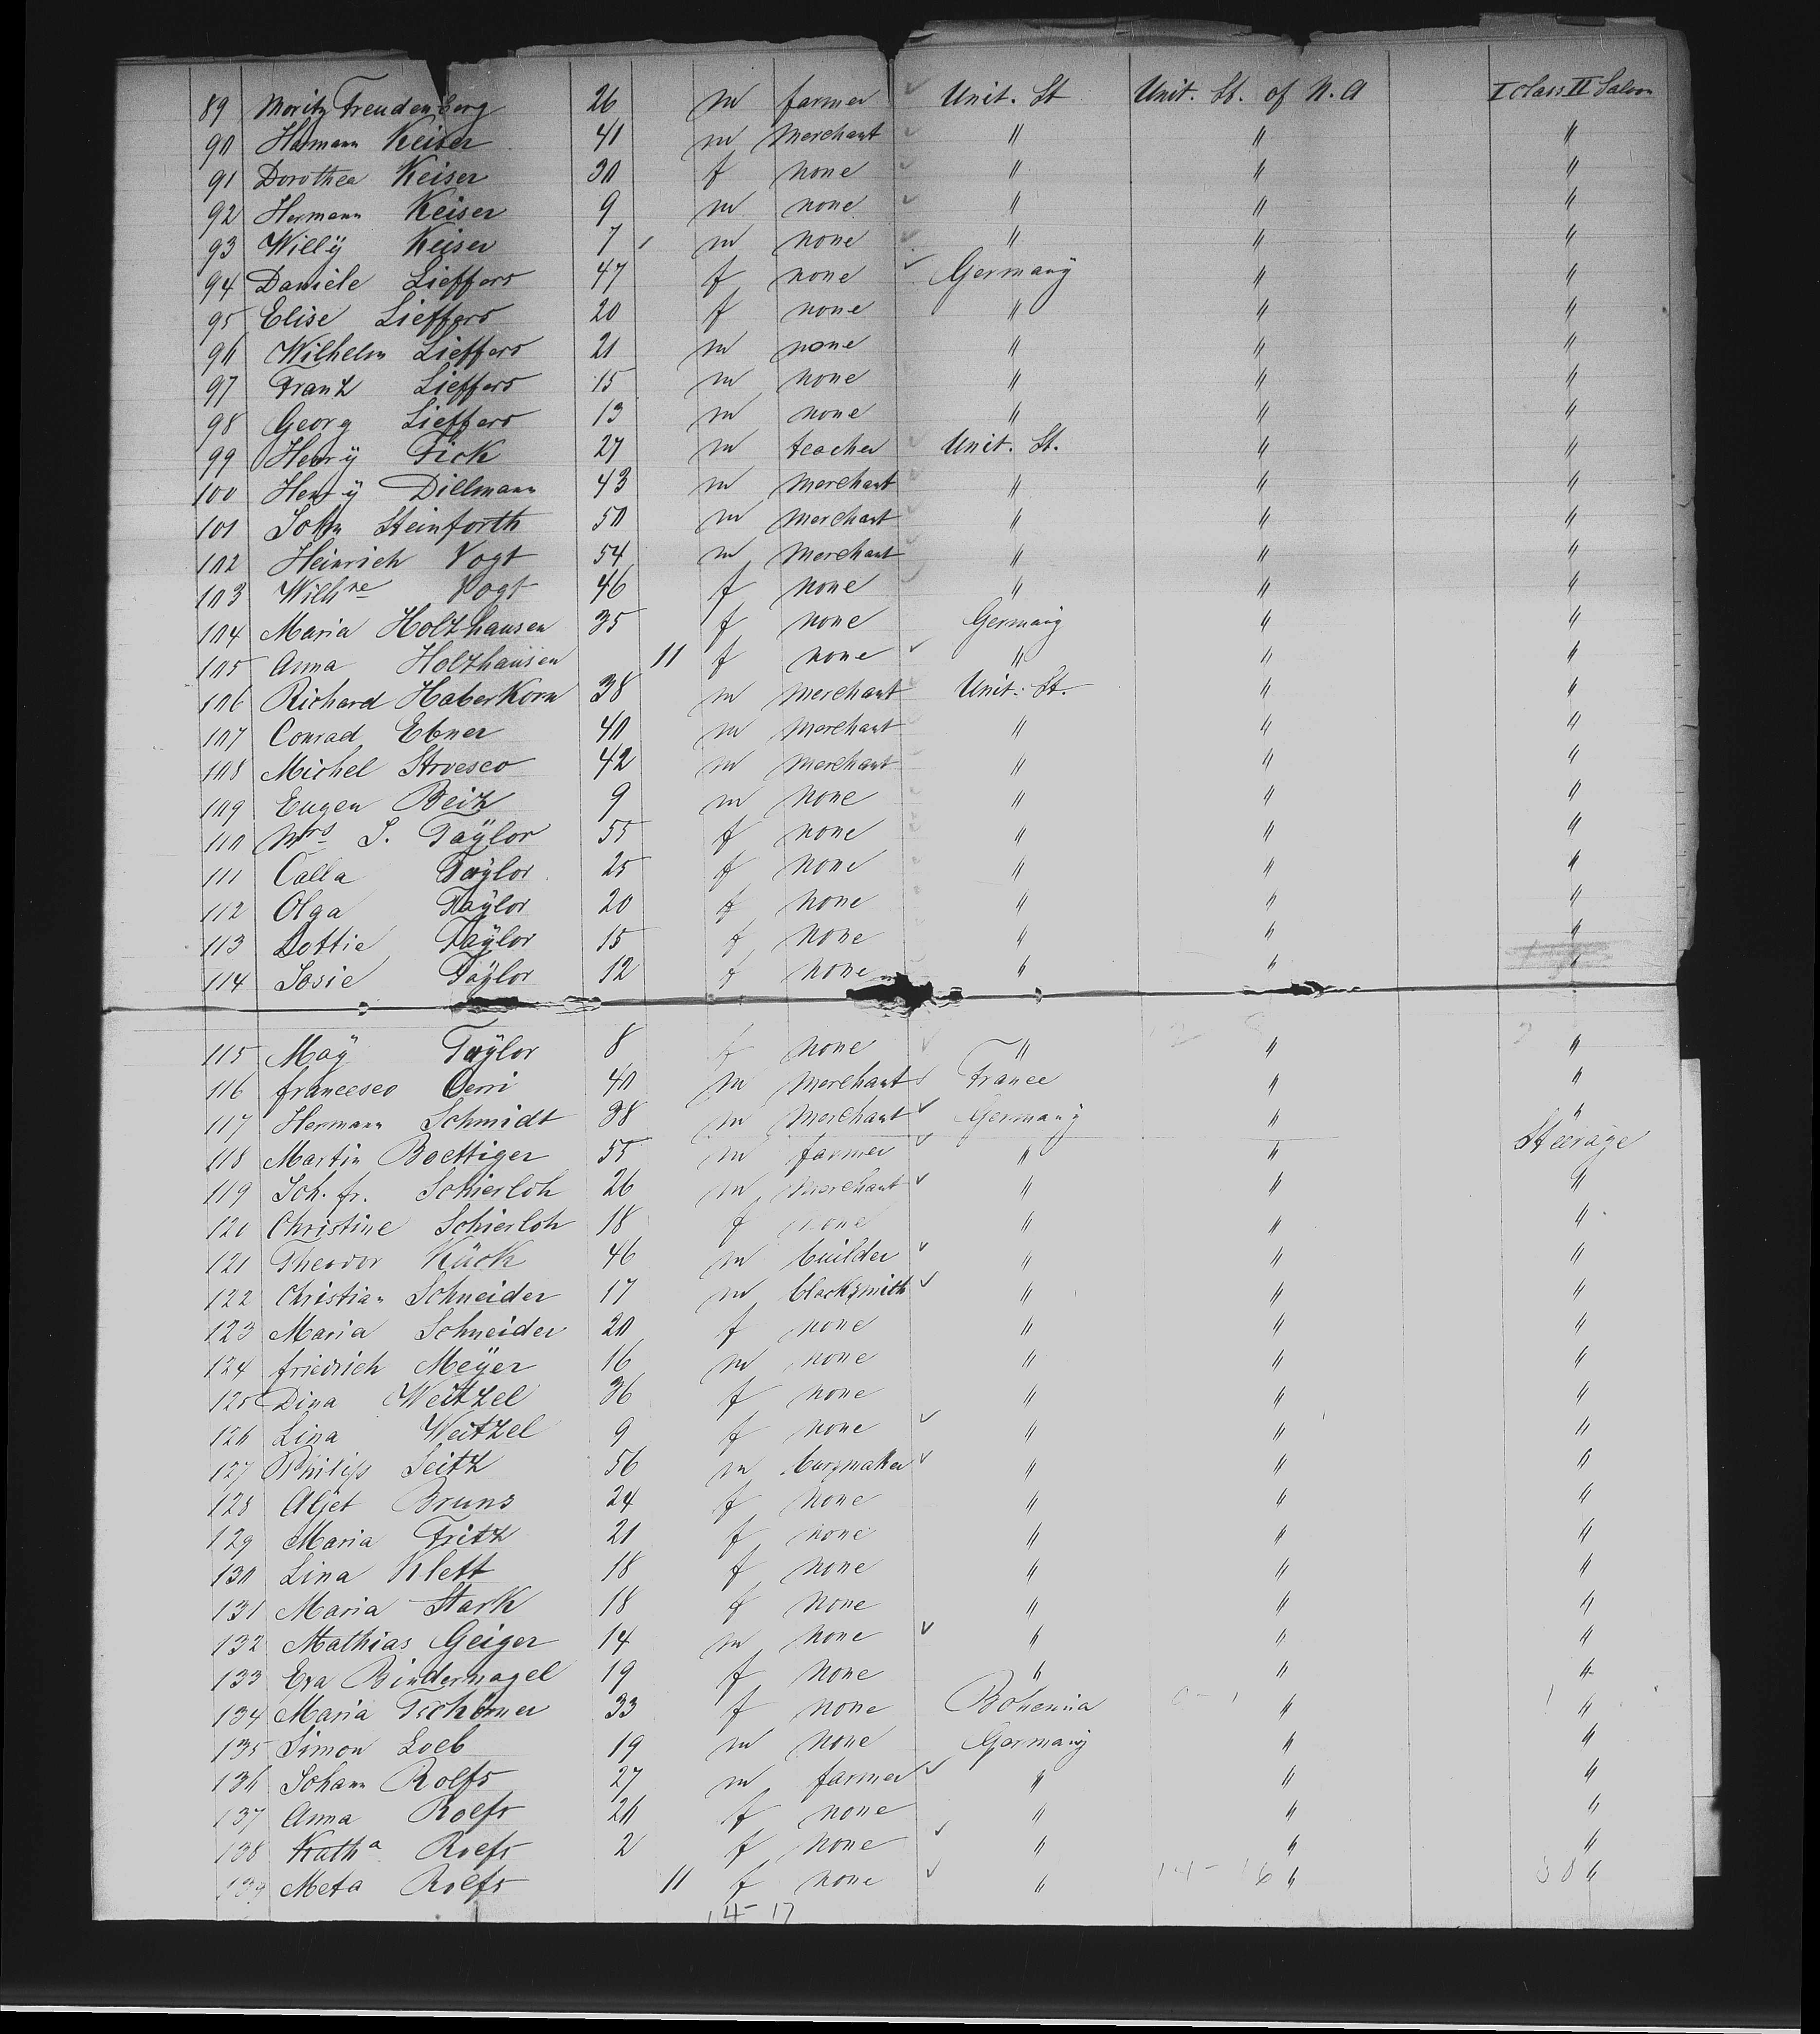 89 Moritz Freudenberg 26 m farmer Unit. St Unit. St. of N. A I class II Saloon
90 Hermann Keiser 41 m Merchant " " "
91 Dorothea Keiser 30 f none " " "
92 Hermann Keiser 9 m none " " "
93 Willÿ Keiser 7 m none " " "
94 Daniele Lieffers 47 f none Germanÿ " "
95 Elise Lieffers 20 f none " " "
96 Wilhelm Lieffers 21 m none " " "
97 Franz Lieffers 15 m none " " "
98 Georg Lieffers 13 m none " " "
99 Henrÿ Fick 27 m teacher Unit. St. " "
100 Henrÿ Dillmann 43 m Merchant " " "
101 John Steinforth 50 m Merchant " " "
102 Heinrich Vogt 54 m Merchant " " "
103 Wilhne Vogt 46 f none " " "
104 Maria Holzhausen 35 f none Germanÿ " "
105 Anna Holzhausen 11 f none " " "
106 Richard HaberKorn 38 m Merchant Unit. St. " "
107 Conrad Ebner 40 m Merchant " " "
108 Michel 42 m Merchant " " "
109 Eugen Beiz 9 m none " " "
110 Mrs J. Taÿlor 55 f none " " "
111 Calla Taÿlor 25 f none " " "
112 Olga Taÿlor 20 f none " " "
113 Lottie Taÿlor 15 f none " " "
114 Josie Taÿlor 12 f none " " "
115 Maÿ Taÿlor 8 f none " " "
116 francesco Cerri 40 m Merchant France " "
117 Hermann Schmidt 38 m Merchant Germanÿ " "
118 Martin Boettiger 55 m farmer " " Steerage
119 Joh. fr. Schierloh 26 m Merchant " " "
120 Christine Schierloh 18 f none " " "
121 Theodor Kück 46 m builder " " "
122 Christian Schneider 17 m blacksmith " " "
123 Maria Schneider 20 f none " " "
124 friedrich Meÿer 16 m none " " "
125 Dina Weitzel 36 f none " " "
126 Lina Weitzel 9 f none " " "
127 Philipp Seitz 56 m " " "
128 Aljet Bruns 24 f none " " "
129 Maria Fritz 21 f none " " "
130 Lina Klett 18 f none " " "
131 Maria Stark 18 f none " " "
132 Mathias Geiger 14 m none " " "
133 Eva Bindernagel 19 f none " " "
134 Maria Tschörner 33 f none Bohemia " "
135 Simon Loeb 19 m none Germanÿ " "
136 Johann Rolfs 27 m farmer " " "
137 Anna Rolfs 26 f none " " "
138 Katha Rolfs 2 f none " " "
139 Meta Rolfs 11 f none " 14-16 " "
14-17